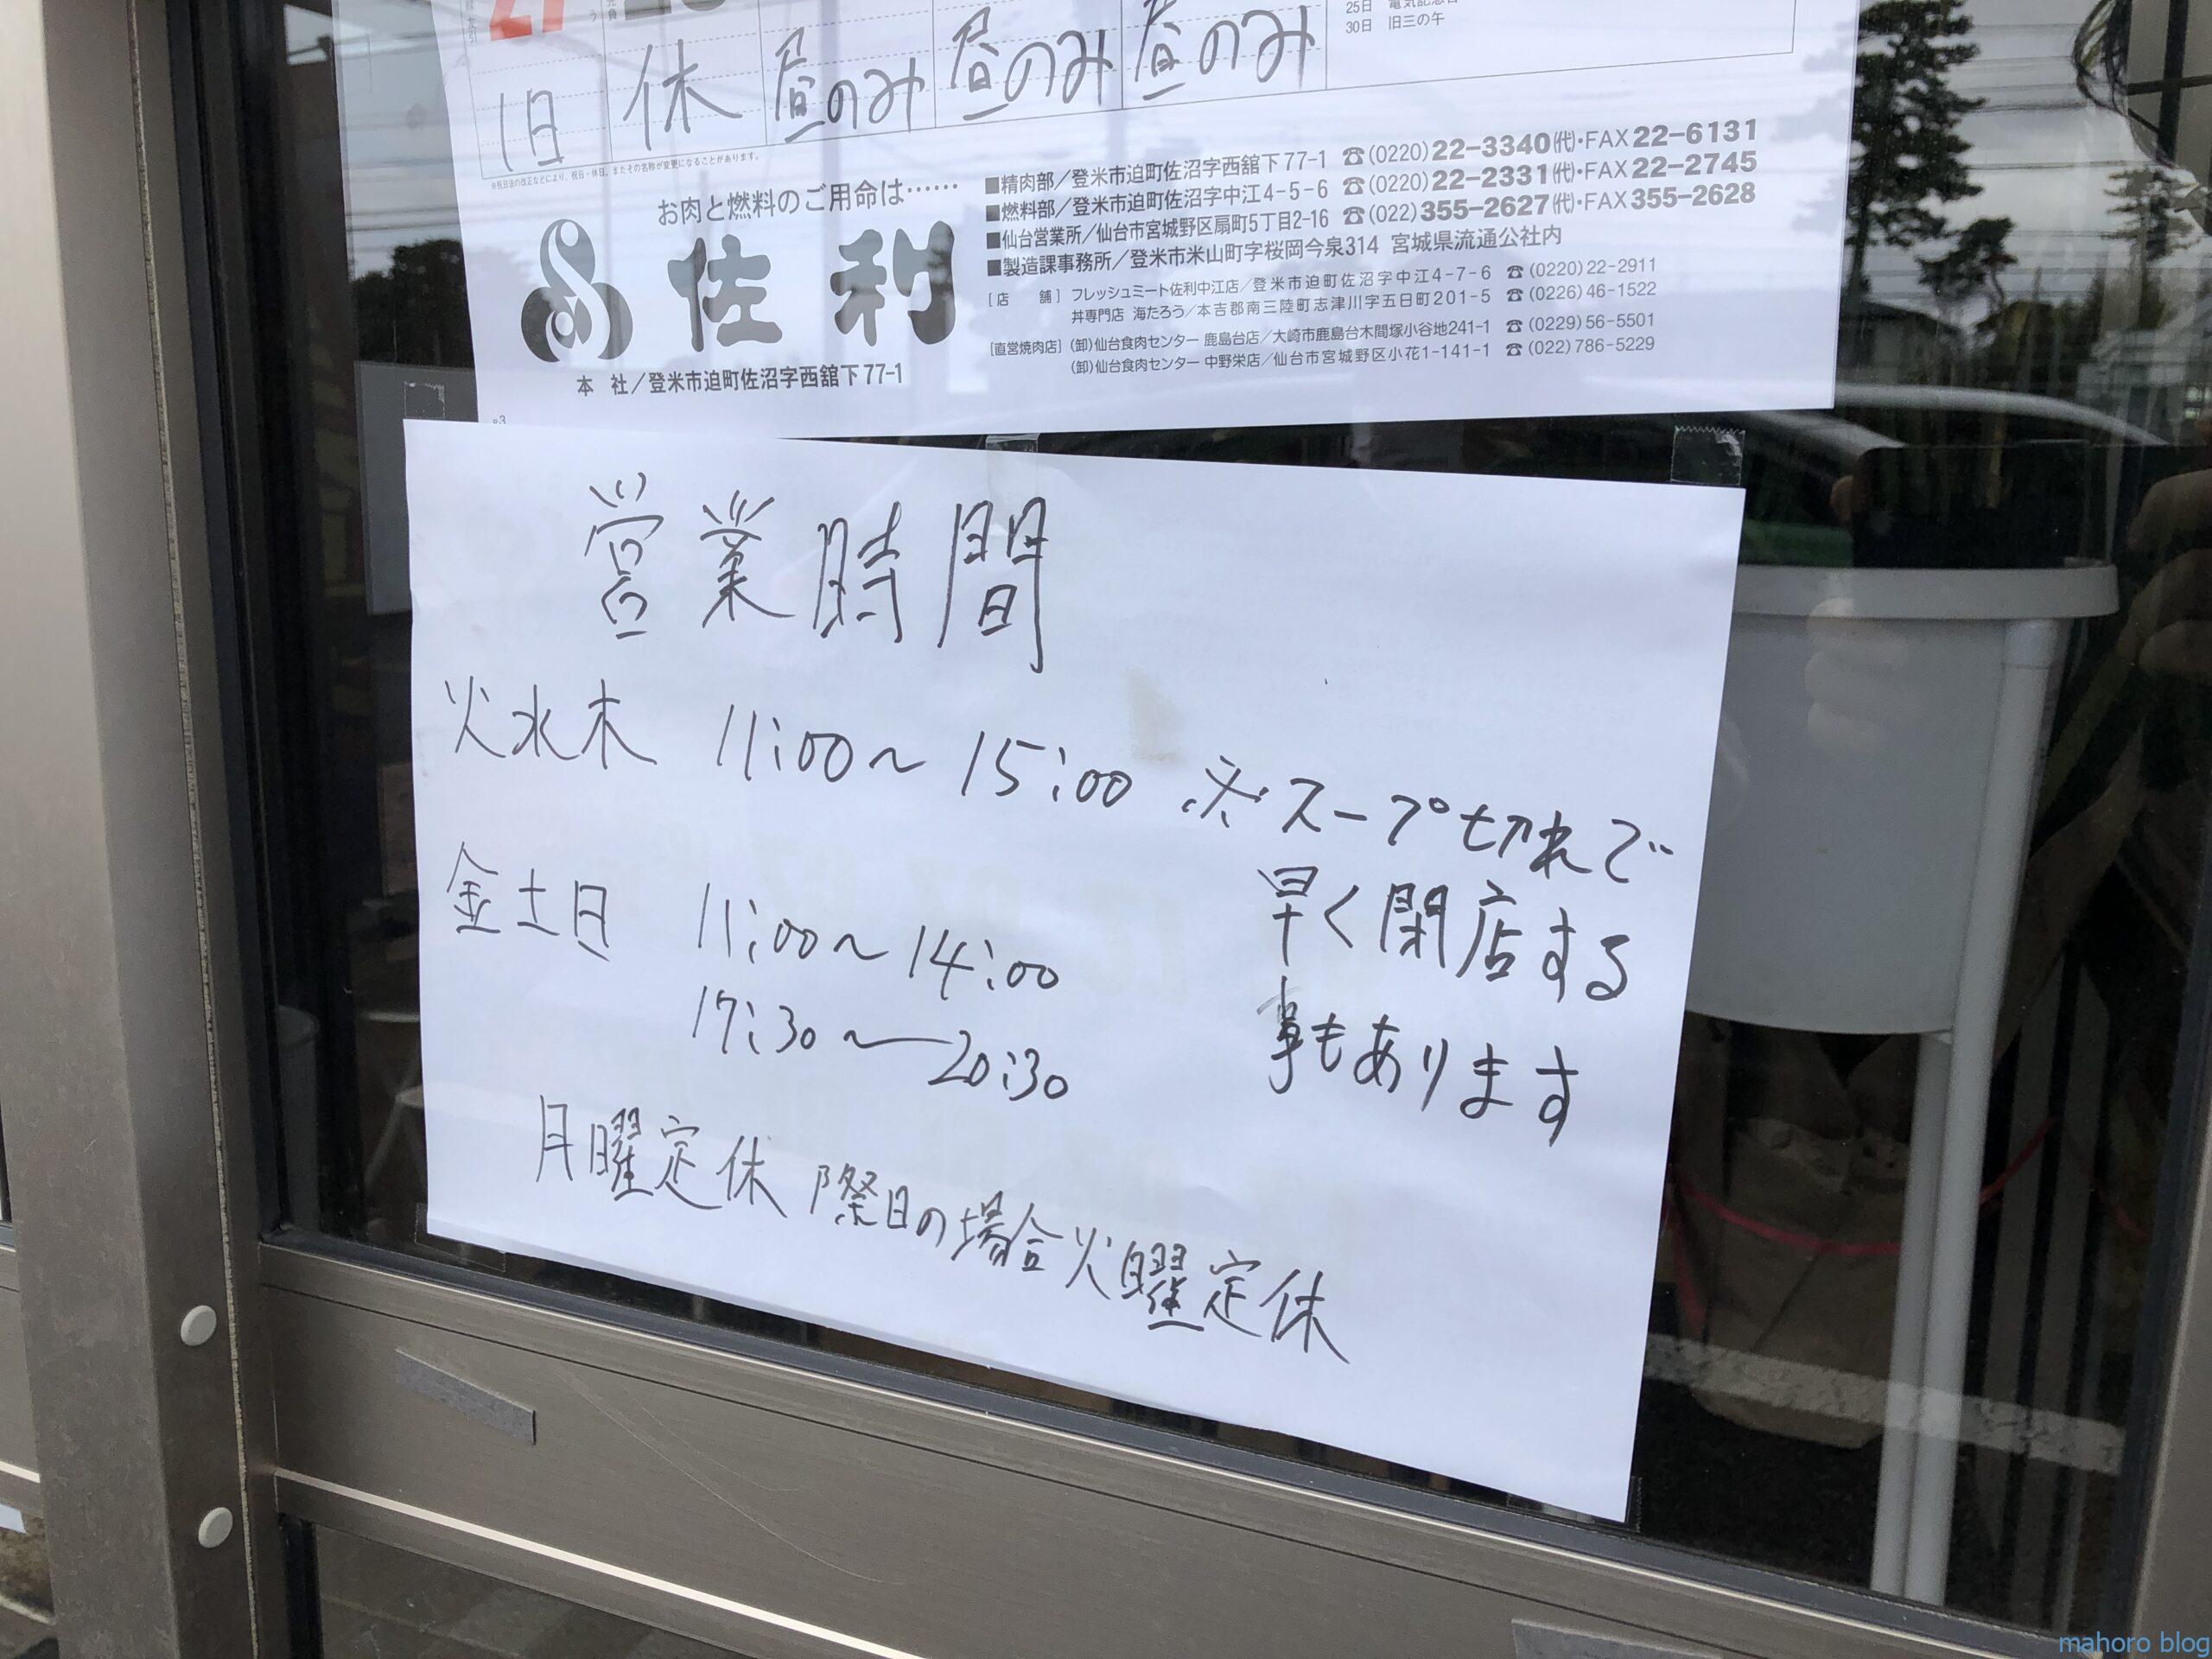 27
25日 電気記念日
30日 旧三の午
1日 休 昼のみ 昼のみ 昼のみ
※祝日法の改正などにより、祝日・休日、またその名称が変更になることがあります。
お肉と燃料のご用命は……
佐利
本 社／登米市迫町佐沼字西舘下77-1
■精肉部／登米市迫町佐沼字西舘下77-1 ☎(0220)22-3340㈹・FAX22-6131
■燃料部／登米市迫町佐沼字中江4-5-6 ☎(0220)22-2331㈹・FAX22-2745
■仙台営業所／仙台市宮城野区扇町5丁目2-16 ☎(022)355-2627㈹・FAX355-2628
■製造課事務所／登米市米山町字桜岡今泉314 宮城県流通公社内
[店 舗] フレッシュミート佐利中江店／登米市迫町佐沼字中江4-7-6 ☎(0220)22-2911
丼専門店 海たろう／本吉郡南三陸町志津川字五日町201-5 ☎(0226)46-1522
[直営焼肉店] (卸)仙台食肉センター 鹿島台店／大崎市鹿島台木間塚小谷地241-1 ☎(0229)56-5501
(卸)仙台食肉センター 中野栄店／仙台市宮城野区小花1-141-1 ☎(022)786-5229
営業時間
火水木 11:00～15:00
金土日 11:00～14:00
17:30～20:30
※スープ切れで
早く閉店する
事もあります
月曜定休 際日の場合火曜定休
mahoro blog